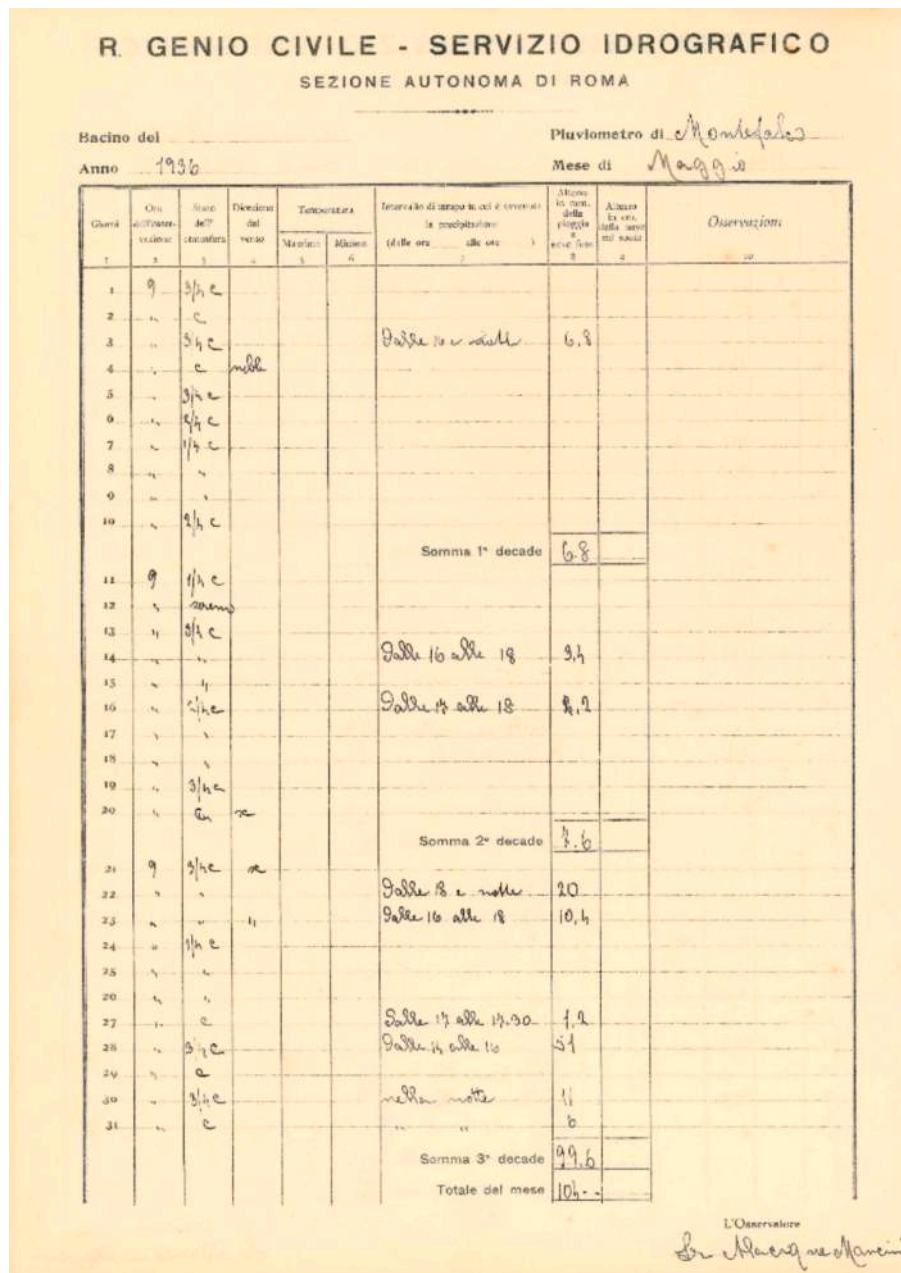 R. GENIO CIVILE - SERVIZIO IDROGRAFICO
SEZIONE AUTONOMA DI ROMA
Bacino del
Pluviometro di Montefalco
Anno 1936
Mese di Maggio
Giorni Ora dell'osservazione Stato dell'atmosfera Direzione del vento Temperatura Massima Minima Intervallo di tempo in cui è avvenuta la precipitazione (dalle ore alle ore ) Altezza in mm. della pioggia e neve fusa Altezza in cm. della neve sul suolo Osservazioni
1 2 3 4 5 6 7 8 9 10
1 9 3/4 c
2 " c
3 " 3/4 c Dalle 16 e notte 6,8
4 " c
5 " 3/4 c
6 " 2/4 c
7 " 1/4 c
8 " "
9 " "
10 " 2/4 c
Somma 1ª decade 6.8
11 9 1/4 c
12 " sereno
13 " 3/4 c
14 " " Dalle 16 alle 18
15 " "
16 " 2/4 c Dalle 17 alle 18
17 " "
18 " "
19 " 3/4 c
20 "
Somma 2ª decade 7.6
21 9 3/4 c
22 " " Dalle 18 e notte 20
23 " " " Dalle 16 alle 18 10,4
24 "
25 " "
26 " "
27 " c Dalle 17 alle 17.30 1,2
28 " 3/4 c Dalle 14 alle 16 51
29 " c
30 " 3/4 c nella notte 11
31 " c " " 6
Somma 3ª decade 99.6
Totale del mese
L'Osservatore
Mancini